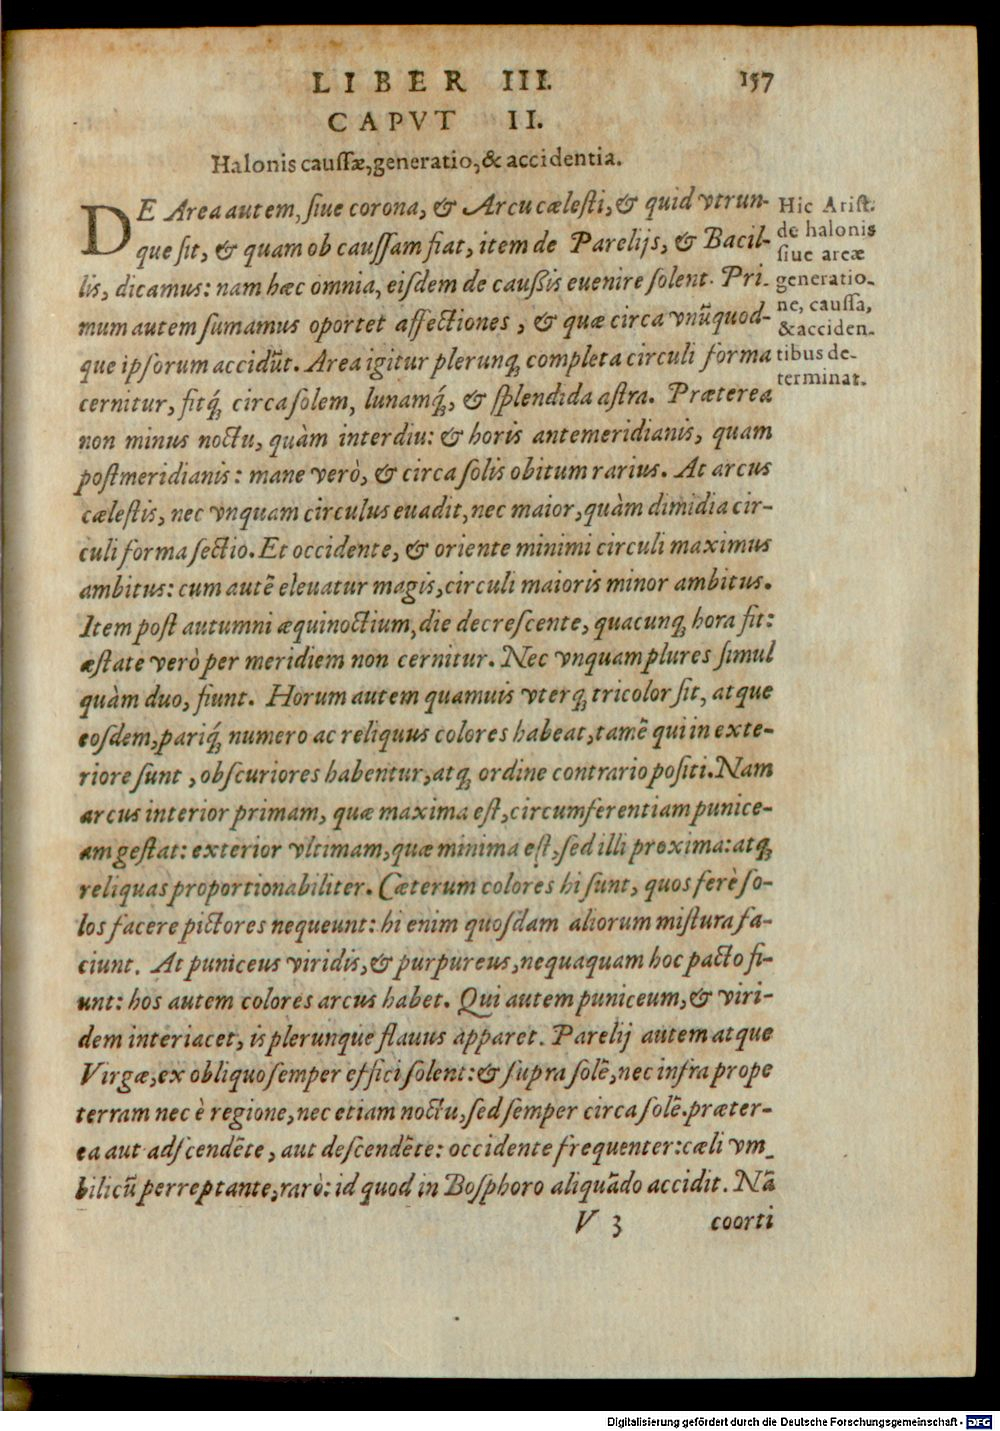 LIBER III. 157
CAPVT II.
Halonis caussæ, generatio, & accidentia.
DE Area autem, siue corona, & Arcu cælesti, & quid vtrun-
que sit, & quam ob caussam fiat, item de Parelijs, & Bacil-
lis, dicamus: nam hæc omnia, eisdem de caußis euenire solent. Pri-
mum autem sumamus oportet affectiones, & quæ circa vnũquod-
que ipsorum accidũt. Area igitur plerunq; completa circuli forma
cernitur, fitq́; circa solem, lunamq́;, & splendida astra. Præterea
non minus noctu, quàm interdiu: & horis antemeridianis, quam
postmeridianis: mane verò, & circa solis obitum rarius. At arcus
cælestis, nec vnquam circulus euadit, nec maior, quàm dimidia cir-
culi forma sectio. Et occidente, & oriente minimi circuli maximus
ambitus: cum autẽ eleuatur magis, circuli maioris minor ambitus.
Item post autumni æquinoctium, die decrescente, quacunq; hora fit:
æstate verò per meridiem non cernitur. Nec vnquam plures simul
quàm duo, fiunt. Horum autem quamuis vterq; tricolor sit, atque
eosdem, pariq́; numero ac reliquus colores habeat, tamẽ qui in exte-
riore sunt, obscuriores habentur, atq; ordine contrario positi. Nam
arcus interior primam, quæ maxima est, circumferentiam punice-
am gestat: exterior vltimam, quæ minima est, sed illi proxima: atq;
reliquas proportionabiliter. Cæterum colores hi sunt, quos ferè so-
los facere pictores nequeunt: hi enim quosdam aliorum mistura fa-
ciunt. At puniceus viridis, & purpureus, nequaquam hoc pacto fi-
unt: hos autem colores arcus habet. Qui autem puniceum, & viri-
dem interiacet, is plerunque flauus apparet. Parelij autem atque
Virgæ, ex obliquo semper effici solent: & supra solẽ, nec infra prope
terram nec è regione, nec etiam noctu, sed semper circa solẽ. præter-
ea aut adscendẽte, aut descendẽte: occidente frequenter: cæli vm_
bilicũ perreptante, rarò: id quod in Bosphoro aliquãdo accidit. Nã
V 3 coorti
Hic Arist.
de halonis
siue areæ
generatio-
ne, caussa,
& acciden-
tibus de-
terminat.
Digitalisierung gefördert durch die Deutsche Forschungsgemeinschaft - DFG